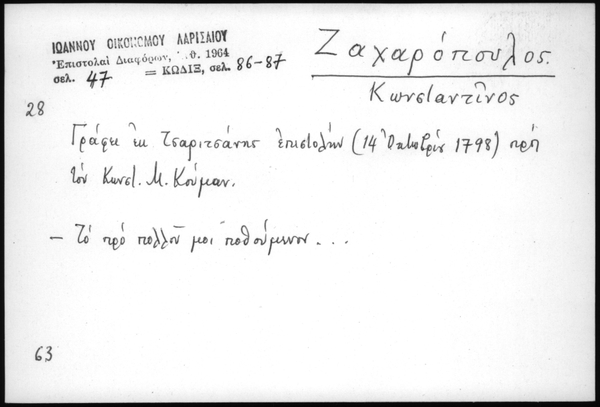 ΙΩΑΝΝΟΥ ΟΙΚΟΝΟΜΟΥ ΛΑΡΙΣΑΙΟΥ
Ἐπιστολαὶ Διαφόρων, 1964
σελ. 47 = ΚΩΔΙΞ, σελ. 86-87
Ζαχαρόπουλος.
Κωνσταντῖνος
28
Γράφει ἐκ Τσαριτσάνης ἐπιστολὴν (14 Ὀκτωβρίου 1798) πρὸς
τὸν Κωνστ. Μ. Κούμαν.
– Τὸ πρὸ πολλοῦ μοι ποθούμενον...
63